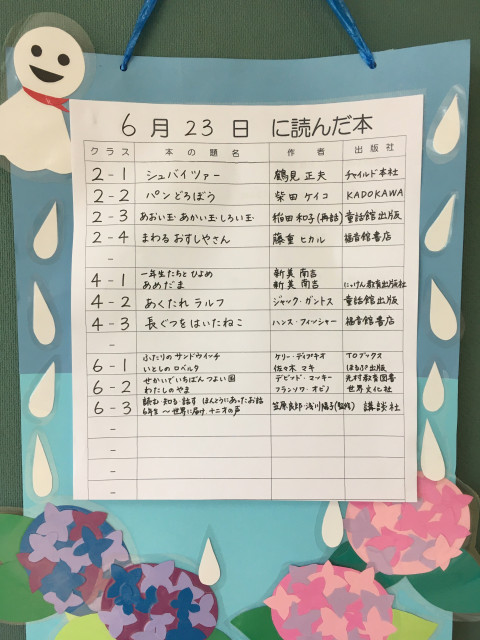 6月23日 に読んだ本
クラス 本の題名 作者 出版社
2-1 シュバイツァー 鶴見正夫 チャイルド本社
2-2 パンどろぼう 柴田ケイコ KADOKAWA
2-3 あおい玉・あかい玉・しろい玉・ 稲田和子(再話) 童話館出版
2-4 まわるおすしやさん 藤重ヒカル 福音館書店
-
4-1 一年生たちとひよめ 新美南吉
あめだま 新美南吉 にっけん教育出版社
4-2 あくたれラルフ ジャック・ガントス 童話館出版
4-3 長ぐつをはいたねこ ハンス・フィッシャー 福音館書店
-
6-1 ふたりのサンドウィッチ ケリー・ディプキオ TOブックス
いとしのロベルタ 佐々木マキ ほるぷ出版
6-2 せかいでいちばんつよい国 デビッド・マッキー 光村教育図書
わたしのやま フランソワ・オビノ 世界文化社
6-3 読む・知る・話す ほんとうにあったお話
6年生 〜世界に届け、十二才の声 笠原良郎・浅川陽子(監修) 講談社
-
-
-
-